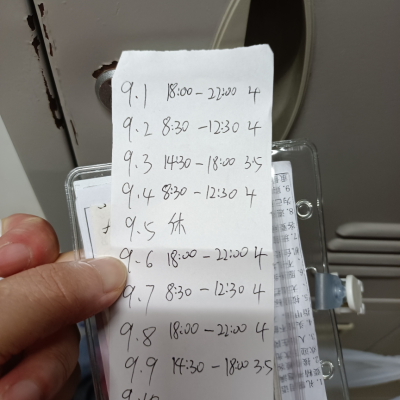 9.1 18:00-22:00 4
9.2 8:30-12:30 4
9.3 14:30-18:00 3.5
9.4 8:30-12:30 4
9.5 休
9.6 18:00-22:00 4
9.7 8:30-12:30 4
9.8 18:00-22:00 4
9.9 14:30-18:00 3.5